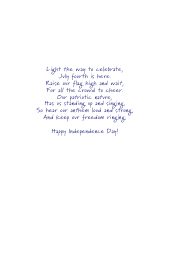 Light the way to celebrate,
July fourth is here.
Raise our flag high and wait,
For all the crowd to cheer.
Our patriotic nature,
Has us standing up and singing,
So hear our anthem loud and strong,
And keep our freedom ringing.
Happy Independence Day!